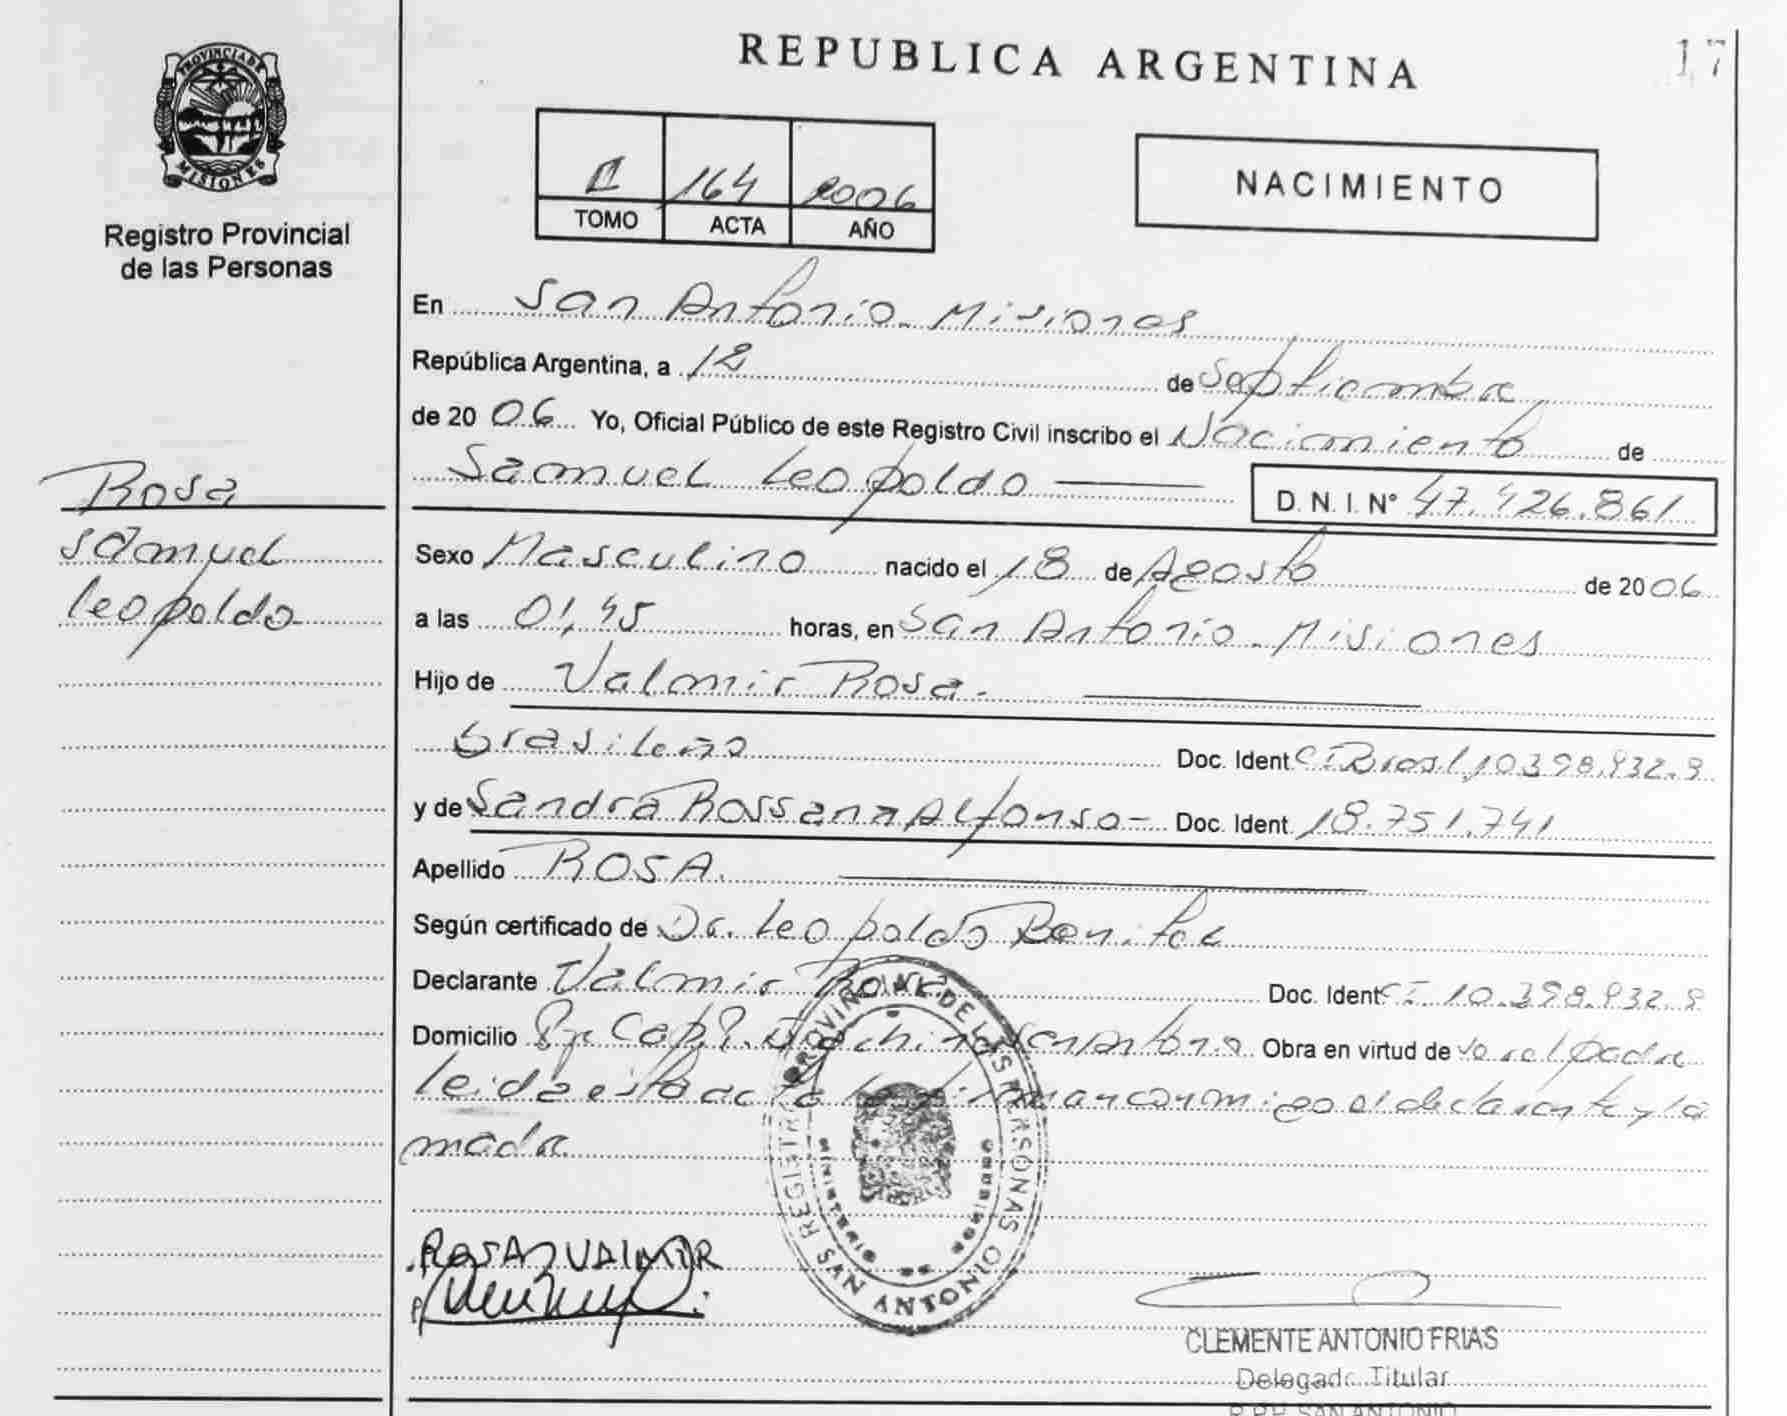 REPUBLICA ARGENTINA
17
PROVINCIA DE
MISIONES
Registro Provincial
de las Personas
1 164 2006
TOMO ACTA AÑO
NACIMIENTO
En San Antonio - Misiones
República Argentina, a 12 de Septiembre
de 2006 Yo, Oficial Público de este Registro Civil inscribo el Nacimiento de
Samuel Leopoldo
D. N. I. Nº 47.426.861
Rosa
Samuel
Leopoldo
Sexo Masculino nacido el 18 de Agosto de 2006
a las 01,45 horas, en San Antonio - Misiones
Hijo de Valmir Rosa.
brasileño Doc. Ident C.I Brasil 10.398.932.9
y de Sandra Rossana Alfonso - Doc. Ident 18.751.741
Apellido ROSA.
Según certificado de Dr. Leopoldo Benitez
Declarante Valmir Rosa Doc. Ident C.I. 10.398.932.9
Domicilio San Antonio Obra en virtud de ser el padre
leida esta acta la firman conmigo el declarante y la
madre
REGISTRO PROVINCIAL DE LAS PERSONAS
SAN ANTONIO
MINISTERIO DE GOBIERNO
ROSA VALMIR
CLEMENTE ANTONIO FRIAS
Delegado Titular
R.P.P. SAN ANTONIO